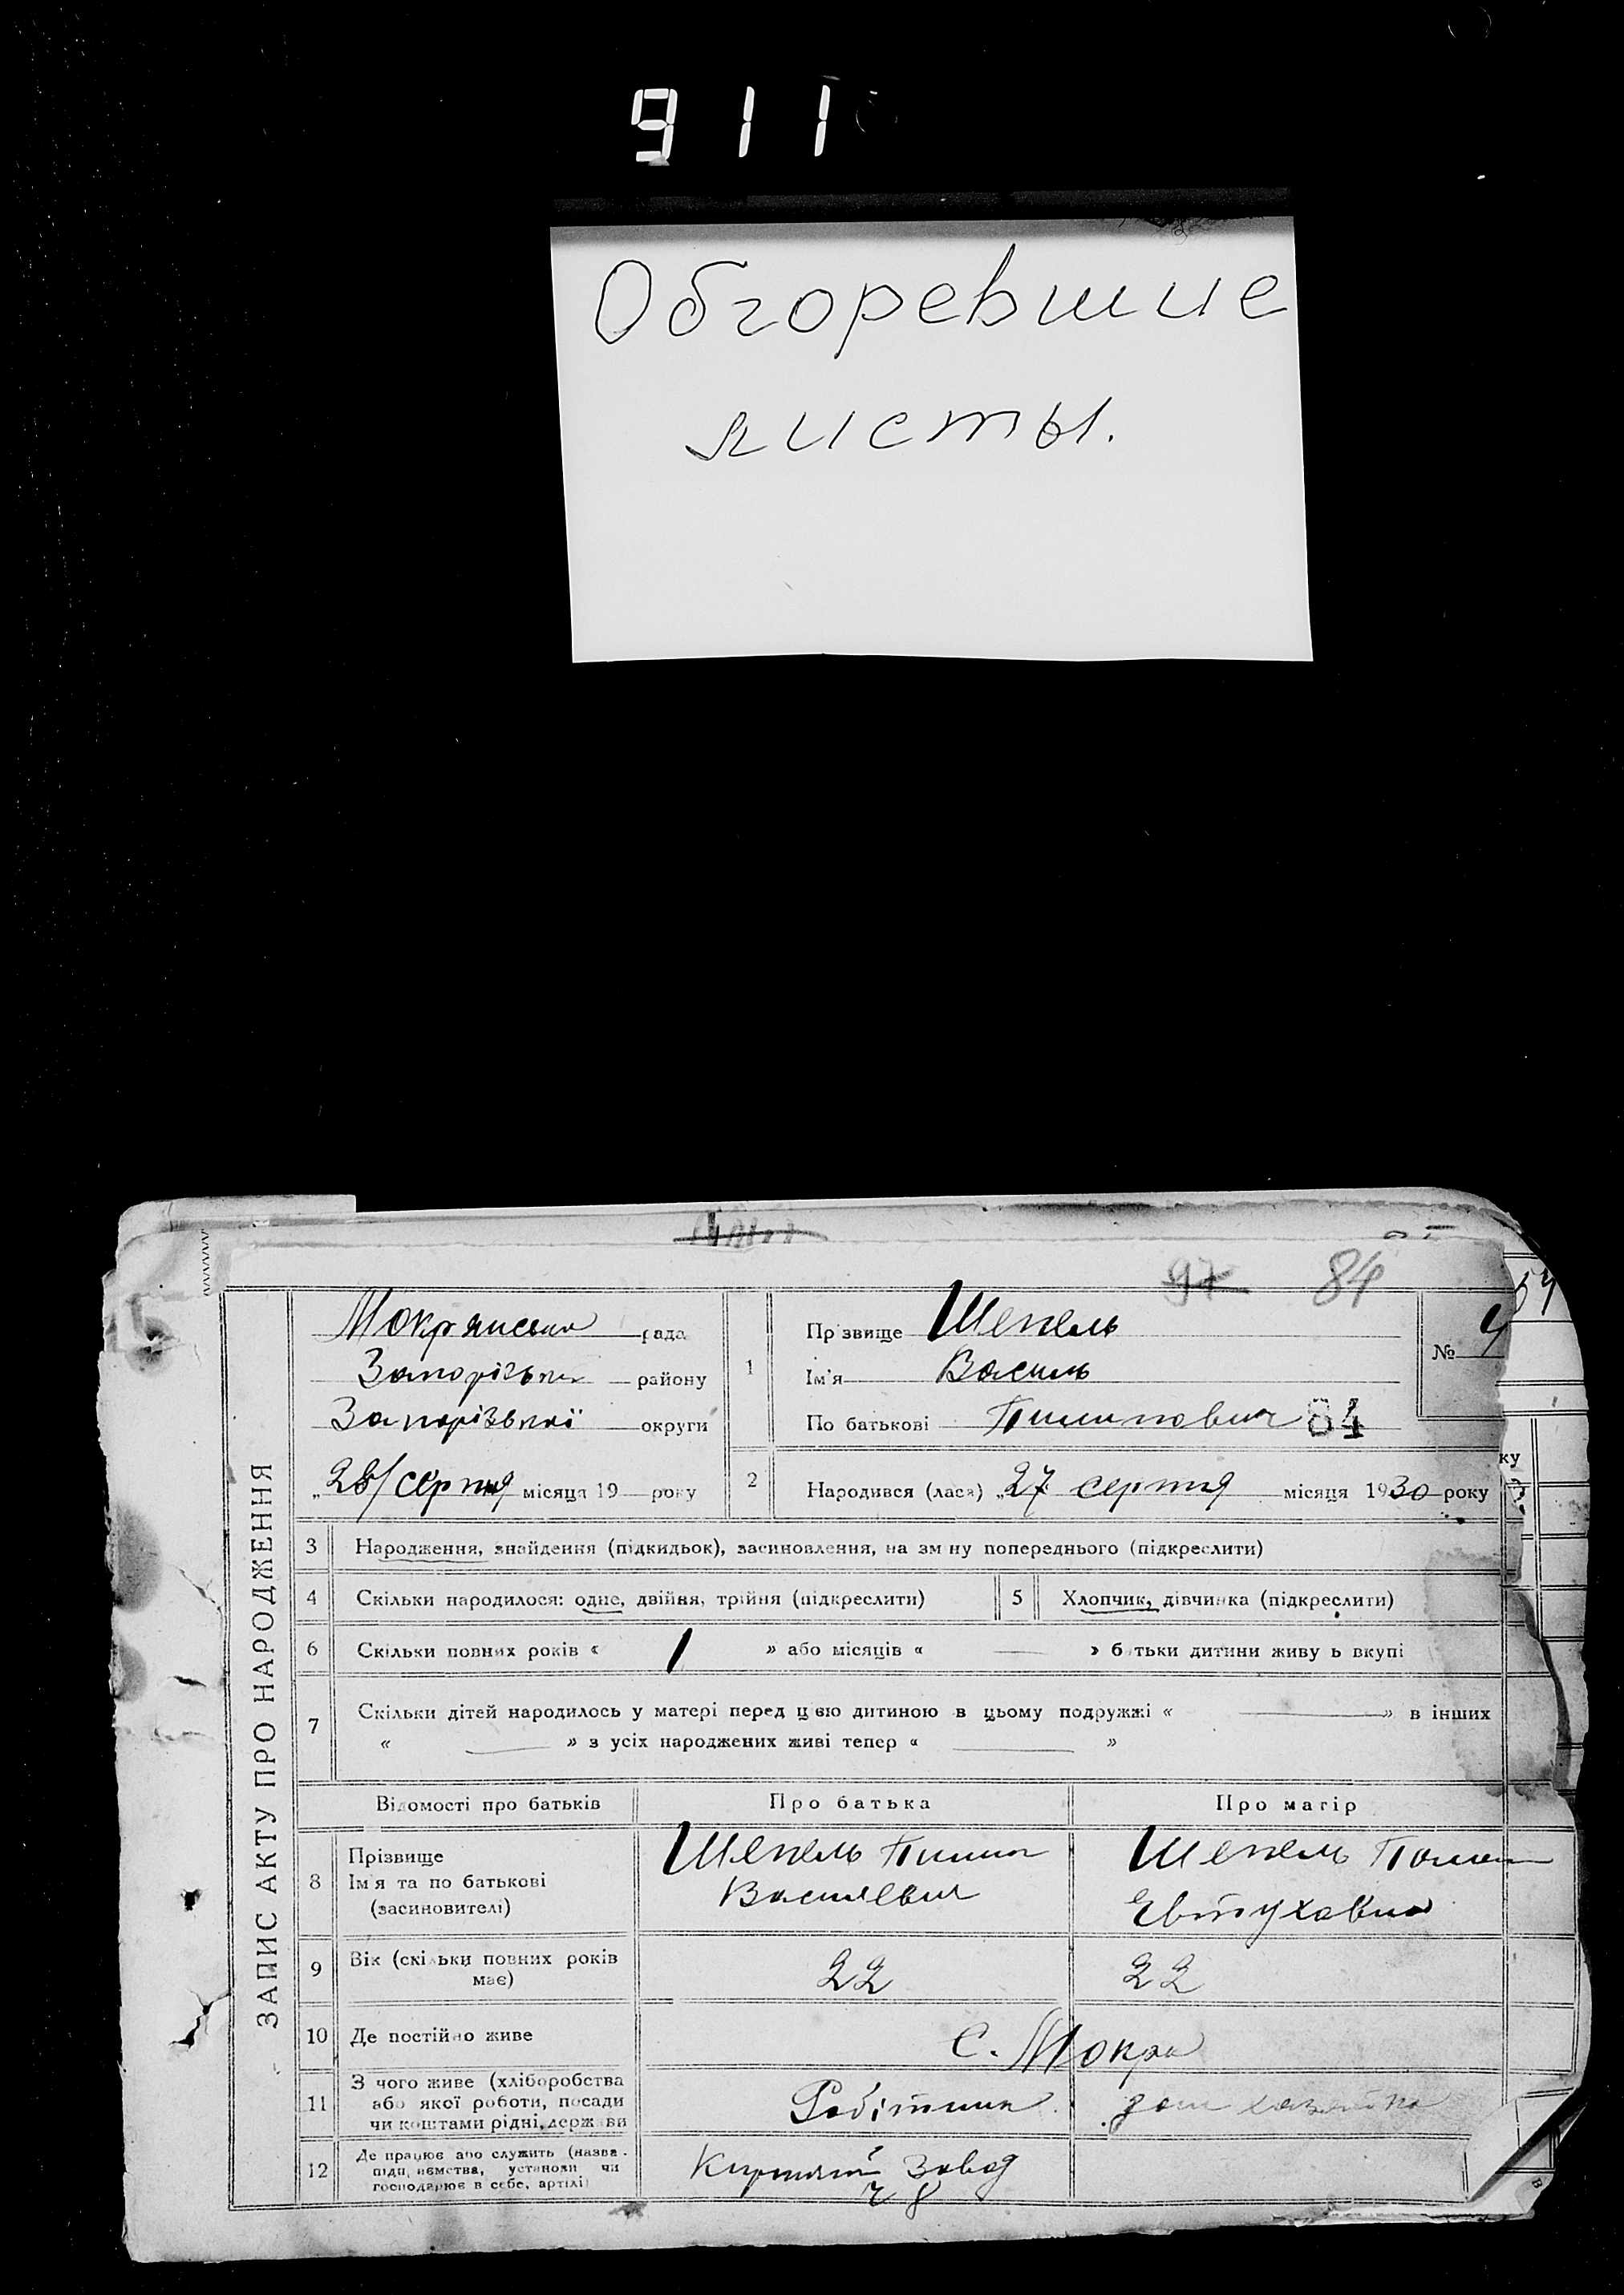 911
Обгоревшие
листы.
97 84
ЗАПИС АКТУ ПРО НАРОДЖЕННЯ
Мокрянська рада
Запорізьк району
Запорізької округи
„28/серпня місяця 19 року
1
Прізвище Шепель
Ім'я Василь
По батькові Пилипович 84
№
2
Народився (лася) „27 серпня місяця 1930 року
3 Народження, знайдення (підкидьок), засиновлення, на зм ну попереднього (підкреслити)
4 Скільки народилося: одне, двійня, трійня (підкреслити)
5 Хлопчик, дівчинка (підкреслити)
6 Скільки повних років « 1 » або місяців « » батьки дитини живу ь вкупі
7 Скільки дітей народилось у матері перед цією дитиною в цьому подружжі « » в інших
« » з усіх народжених живі тепер « »
Відомості про батьків Про батька Про матір
8 Прізвище
Ім'я та по батькові
(засиновителі)
Шепель Пилип
Васильевич
Шепель
Евтуховна
9 Вік (скільки повних років
має)
22 22
10 Де постійно живе
С. Мокра
11 З чого живе (хліборобства
або якої роботи, посади
чи коштами рідні, держави
Робітник дом хазяйка
12 Де працює або служить (назва
підприємства, установи чи
господарює в себе, артілі)
Завод
ч 8